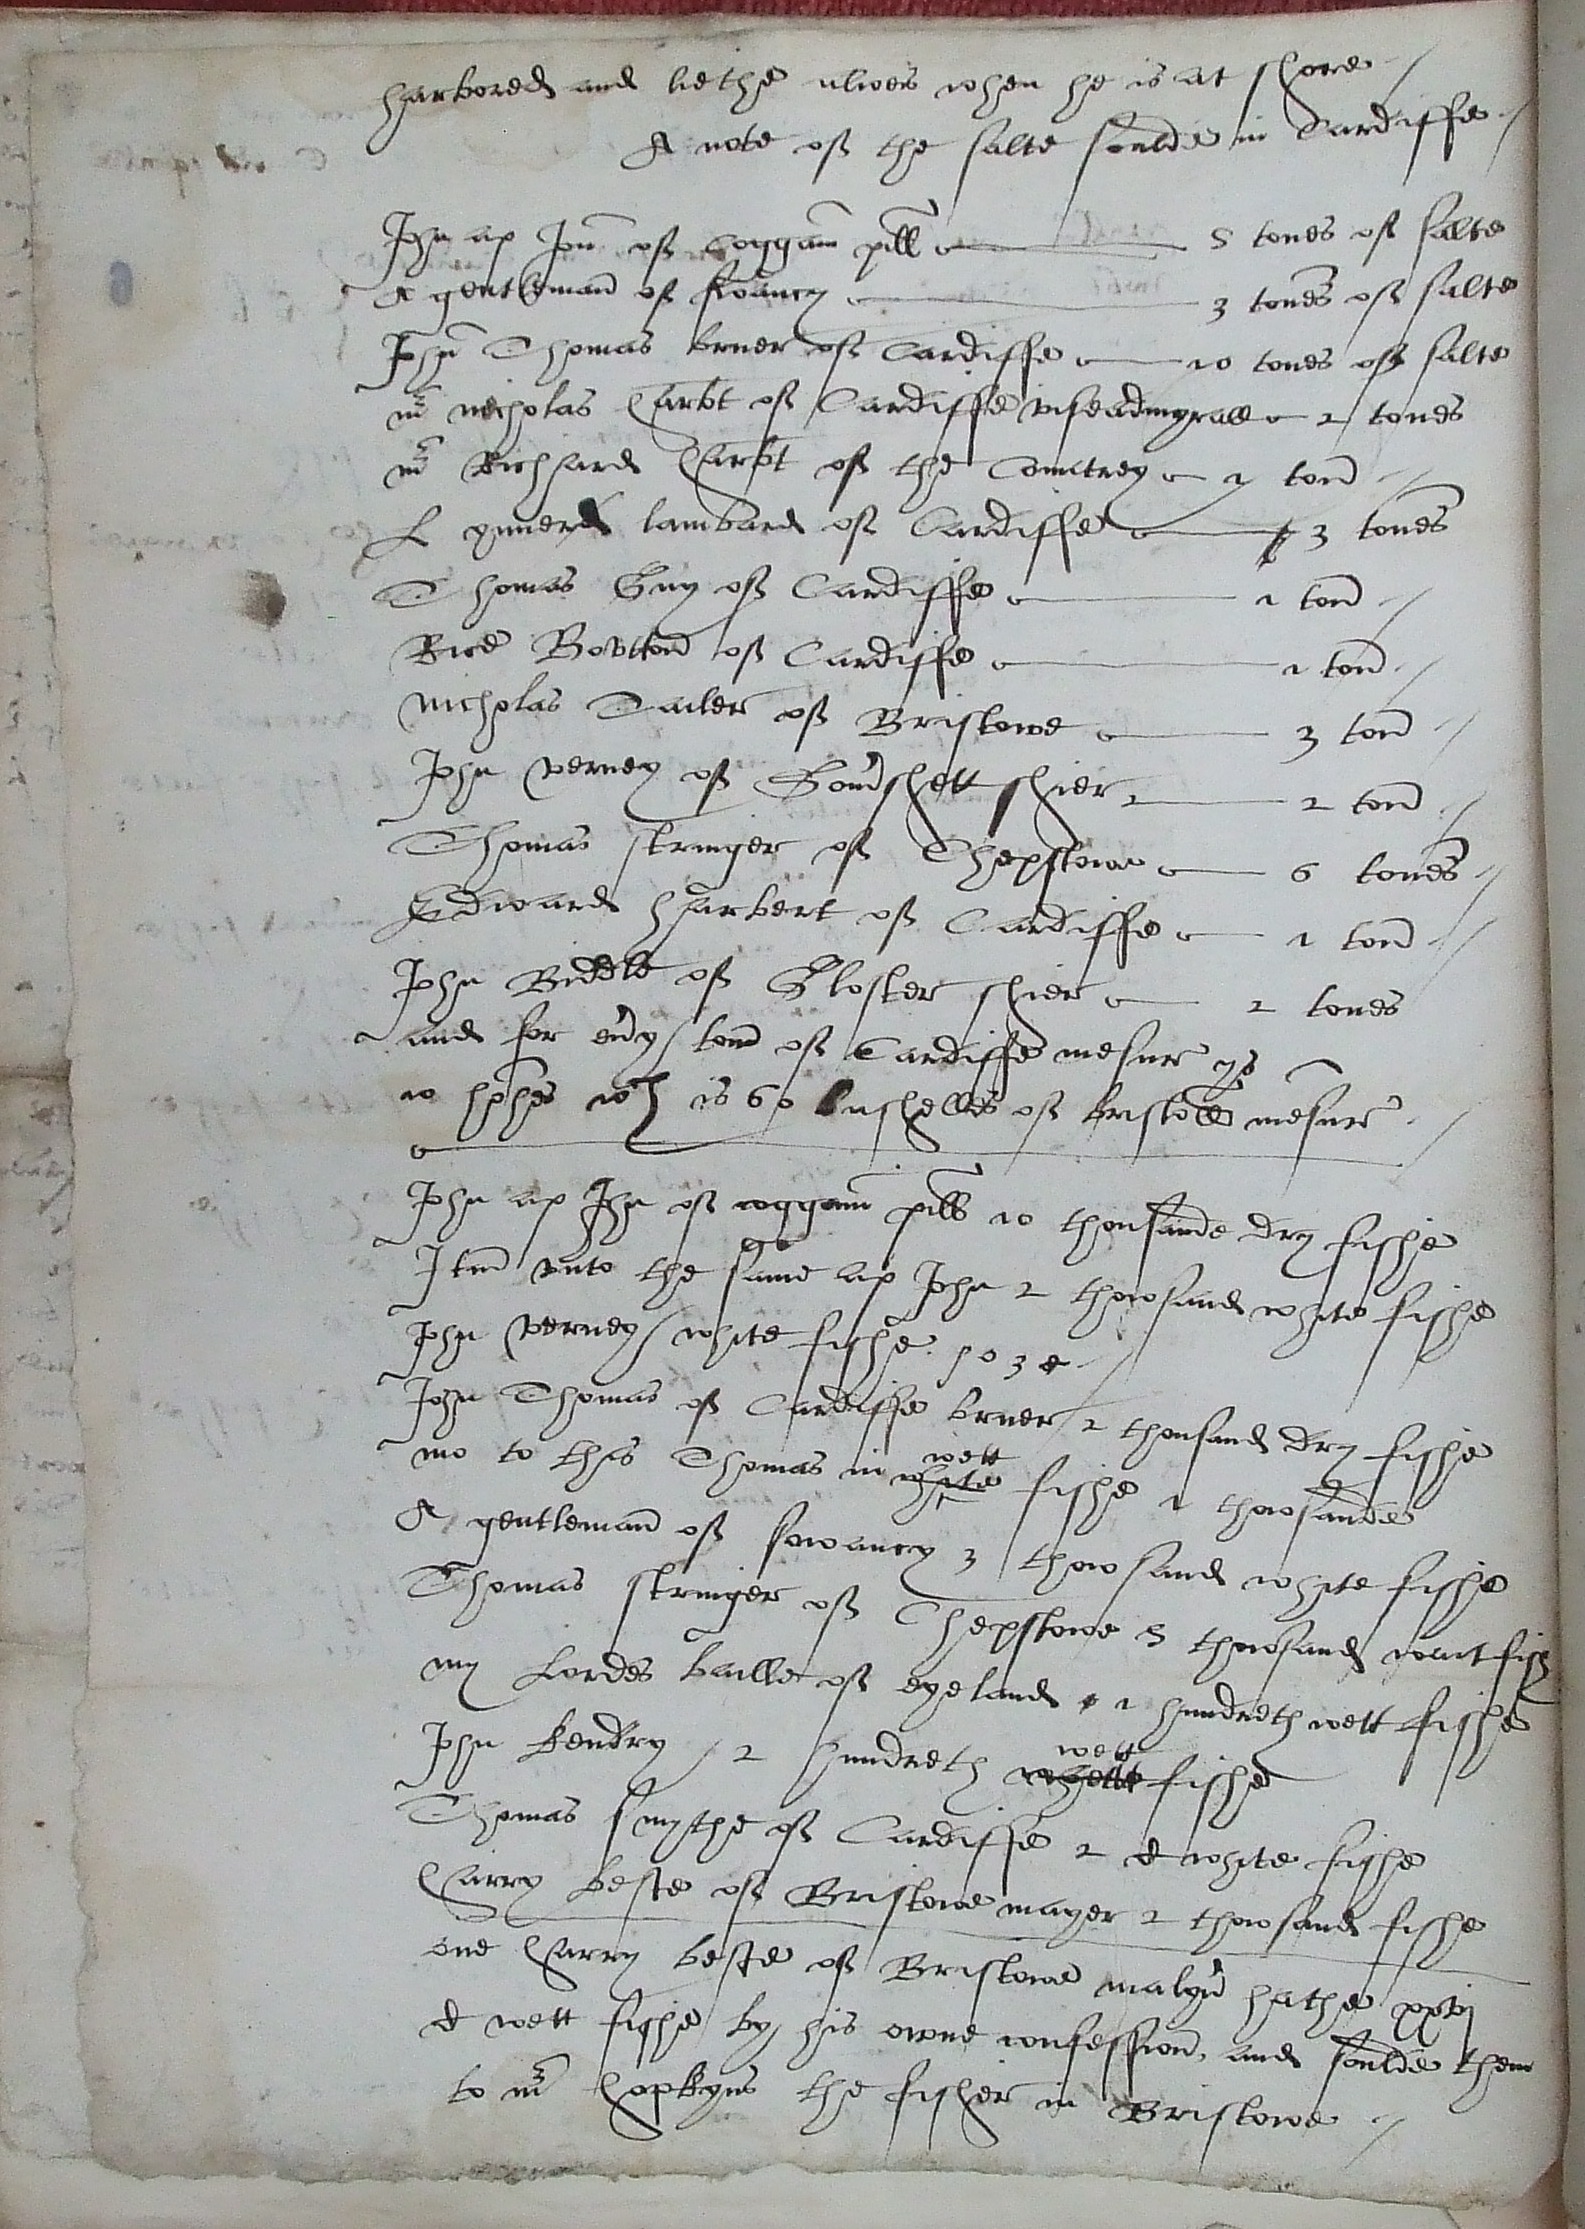 harbored and liethe alweis when he is at shore
A note off the salte soulde in Cardiffe
John ap Jon off Coggam pill 5 tones off salte
A gentleman off 3 tones off salte
John Thomas bruer off Cardiffe 10 tones off salte
mr nicholas harbt off Cardiffe viseadmyrall 2 tones
mr Richhard harbt off the Countrey 1 ton
lambard off Cardiffe 3 tones
Thomas Guy off Cardiffe 1 ton
Rice off Cardiffe 1 ton
nicholas Tailer off Bristowe 3 ton
John verney off shier 2 ton
Thomas stringer off Chepstowe 6 tones
Edward harbert off Cardiffe 1 ton
John Biddle off Gloster shier 2 tones
and for every ton off Cardiffe mesure ys
10 wch is 60 bushelles off bristoll mesure
John ap Jhn off coggam pill 10 thousande dry fishe
Itm vnto the same ap John 2 thowsand white fishe
John verney white fishe
John Thomas off Cardiffe bruer 2 thousand dry fishe
mo to this Thomas in white wett fishe 1 thowsande
A gentleman off sowancy 3 thowsand white fishe
Thomas stringer off Chepstowe 5 thowsand fish
my Lordes baille off eyeland 1 hundreth wett fishe
John kendry 2 hundreth wett fishe
Thomas smythe off Cardiffe 2 C white fishe
harry beste off Bristowe mayer 2 thowsand fishe
one harry beste off Bristowe hathe xxvj
C wett fishe by his owne confession, and soulde them
to mr hopkyns the fisher in Bristowe